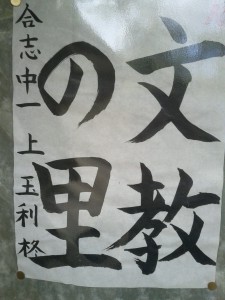 文教
の里
合志中一 上玉利柊